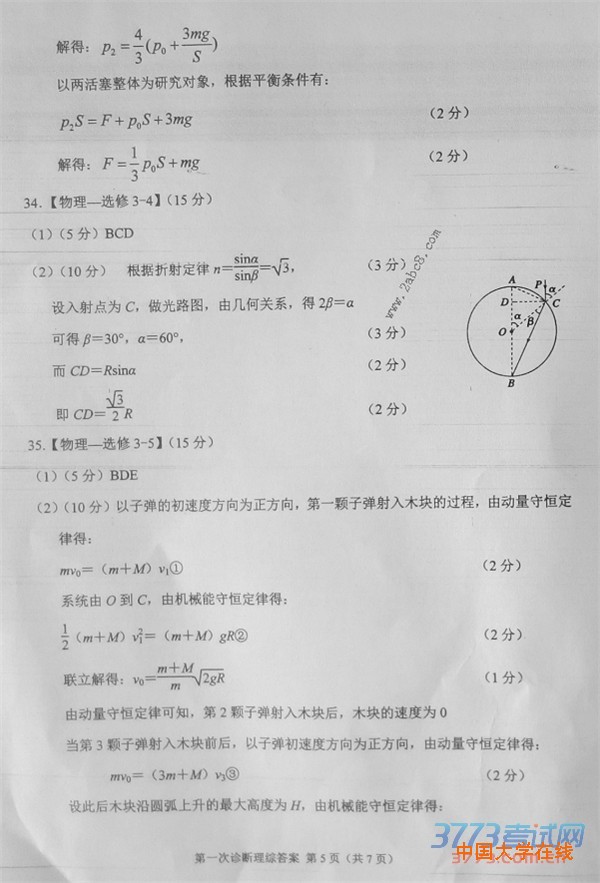 解得: p₂ = 4/3(p₀ + 3mg/S)
以两活塞整体为研究对象，根据平衡条件有:
p₂S = F + p₀S + 3mg （2 分）
解得: F = 1/3 p₀S + mg （2 分）
34.【物理—选修 3-4】(15 分)
(1)（5 分）BCD
(2)（10 分） 根据折射定律 n = sinα/sinβ = √3, （3 分）
www.2abc8.com
设入射点为 C，做光路图，由几何关系，得 2β＝α
可得 β＝30°，α＝60°, （3 分）
而 CD＝Rsinα （2 分）
即 CD＝√3/2 R （2 分）
A P α
D C
O α β
B
35.【物理—选修 3-5】(15 分)
(1)（5 分）BDE
(2)（10 分）以子弹的初速度方向为正方向，第一颗子弹射入木块的过程，由动量守恒定
律得:
mv₀＝（m＋M）v₁① （2 分）
系统由 O 到 C，由机械能守恒定律得:
1/2（m＋M）v₁²＝（m＋M）gR② （2 分）
联立解得: v₀＝(m＋M)/m √2gR （1 分）
由动量守恒定律可知，第 2 颗子弹射入木块后，木块的速度为 0
当第 3 颗子弹射入木块前后，以子弹初速度方向为正方向，由动量守恒定律得:
mv₀＝（3m＋M）v₃③ （2 分）
设此后木块沿圆弧上升的最大高度为 H，由机械能守恒定律得:
3773考试网
中国大学在线
第一次诊断理综答案 第 5 页（共 7 页）